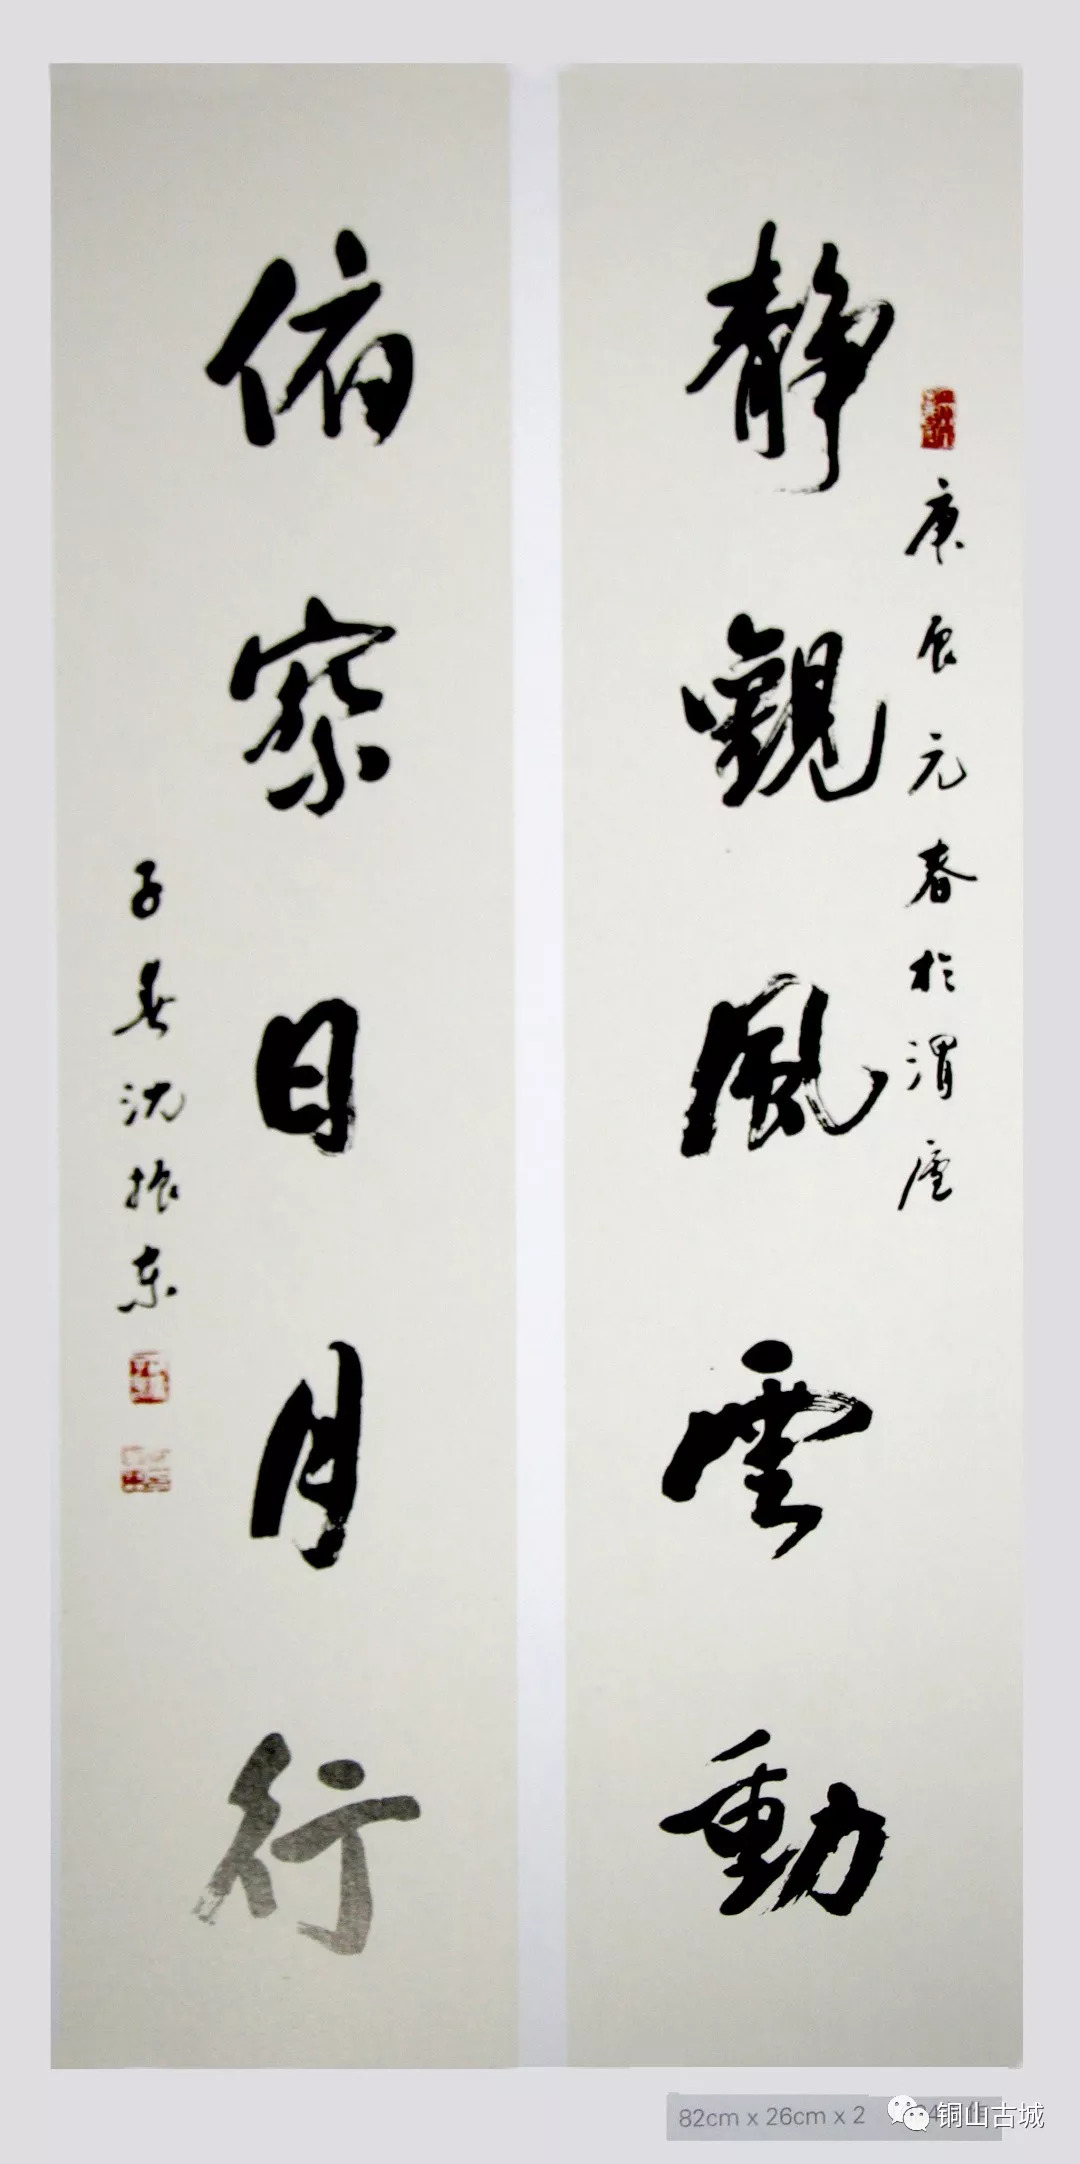 靜觀風雲動
庚辰元春於渭廬
俯察日月行
子奏沈振東
82cm x 26cm x 2
铜山古城